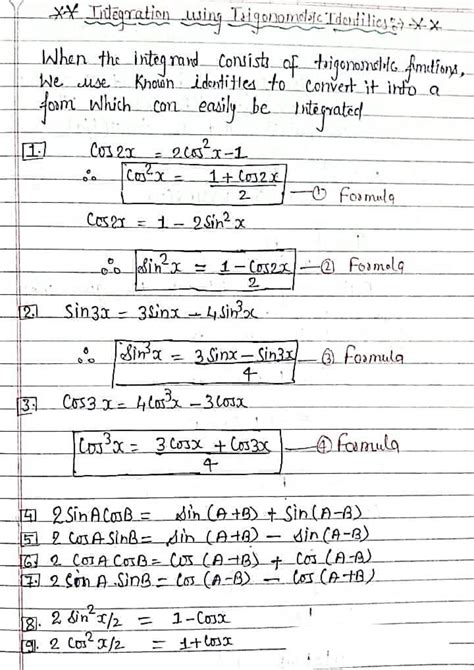 ×× Integration using Trigonometric Identities :→ ××
When the integrand consists of trigonometric functions,
We use Known identities to convert it into a
form which can easily be Integrated
1. Cos2x = 2cos²x-1
∴ Cos²x = (1 + Cos2x)/2 — ① Formula
Cos2x = 1 - 2Sin²x
∴ Sin²x = (1 - Cos2x)/2 — ② Formula
2. Sin3x = 3Sinx - 4Sin³x
∴ Sin³x = (3Sinx - Sin3x)/4 — ③ Formula
3. Cos3x = 4Cos³x - 3Cosx
Cos³x = (3Cosx + Cos3x)/4 — ④ Formula
4] 2SinACosB = Sin (A+B) + Sin(A-B)
5] 2CosASinB = Sin(A+B) - Sin(A-B)
6. 2 CosACosB = Cos (A+B) + Cos (A-B)
7. 2 Sin A.SinB = Cos (A-B) - Cos(A+B)
8. 2 Sin²x/2 = 1-Cosx
9. 2 Cos²x/2 = 1+Cosx